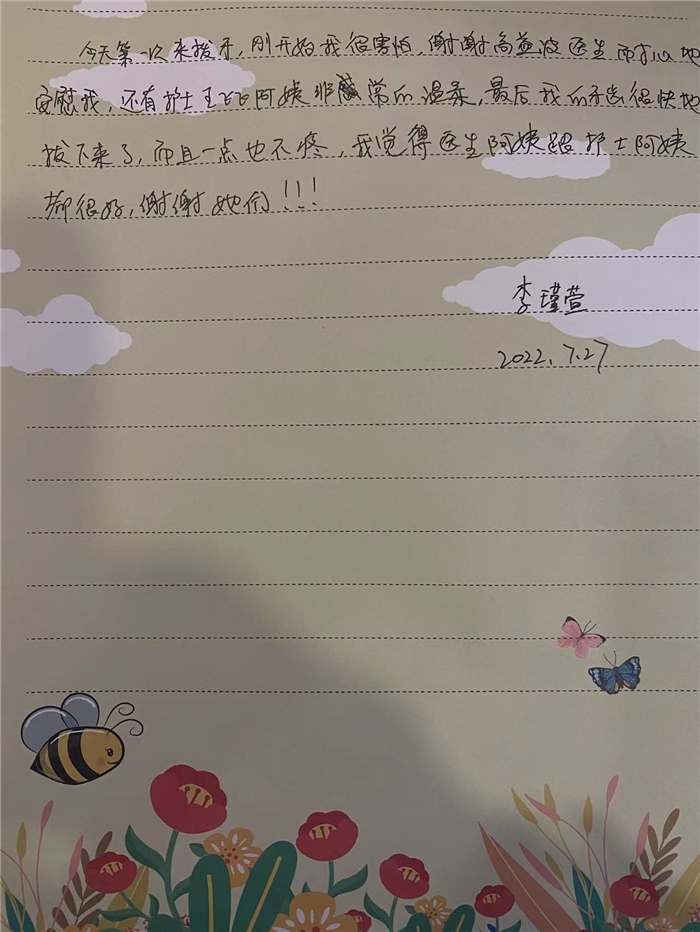 今天第一次来拔牙，刚开始我很害怕，谢谢高益波医生耐心地
安慰我，还有护士王飞飞阿姨非常的温柔，最后我的牙齿很快地
拔下来了，而且一点也不疼，我觉得医生阿姨跟护士阿姨
都很好，谢谢她们！！！
李瑾萱
2022.7.27